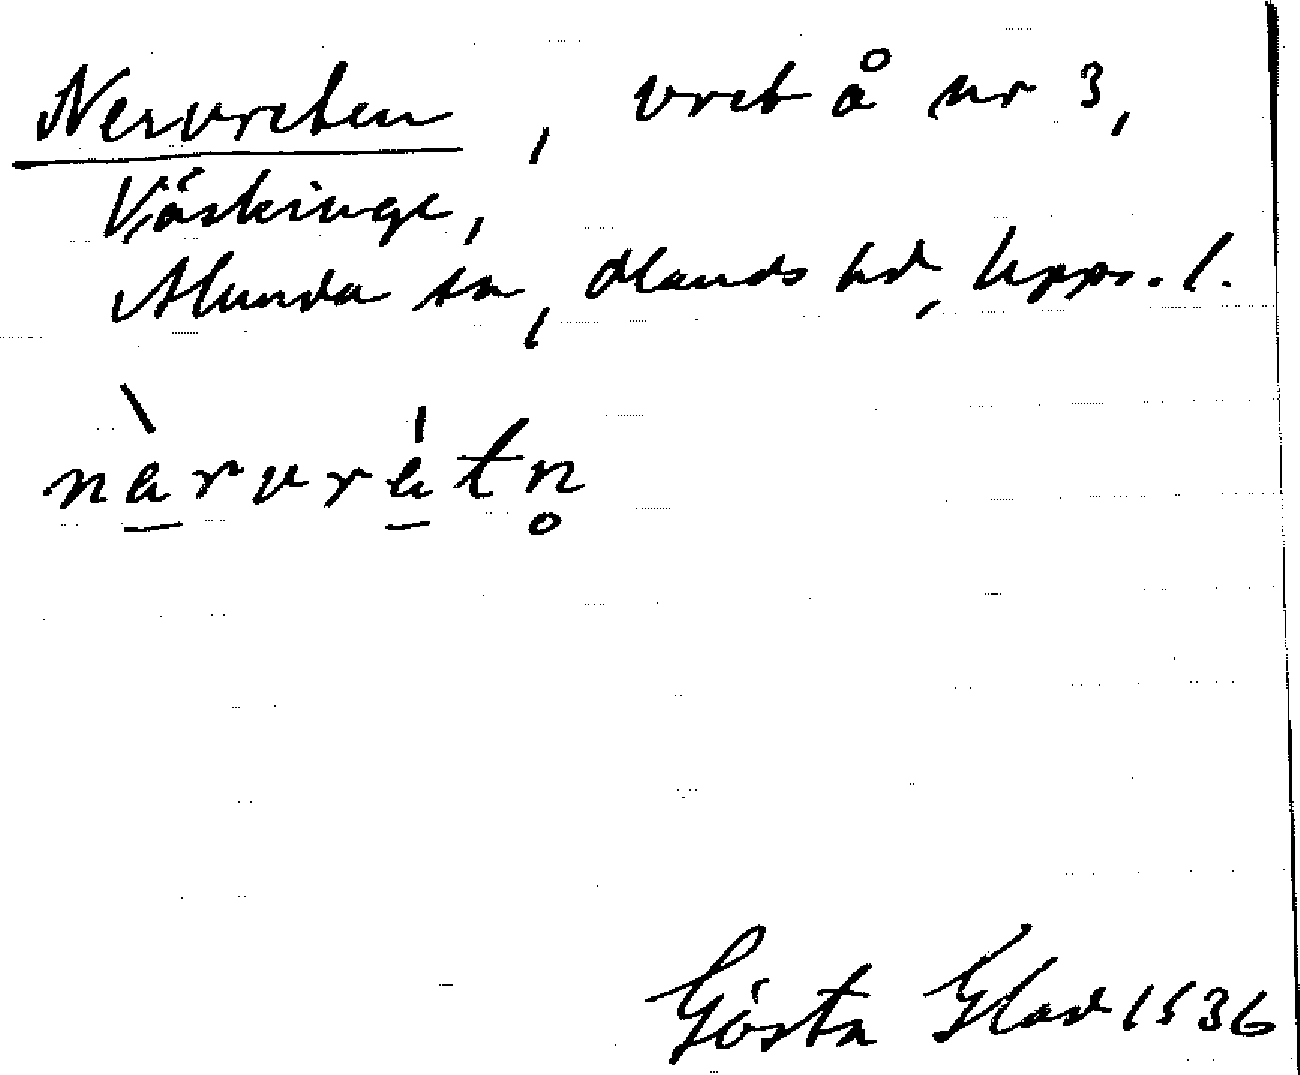 Nervreten, vret å nr 3,
Väskinge,
Alunda sn, Olands hd, Upps. l.
nàrvrátn̥
Gösta Glad 1936